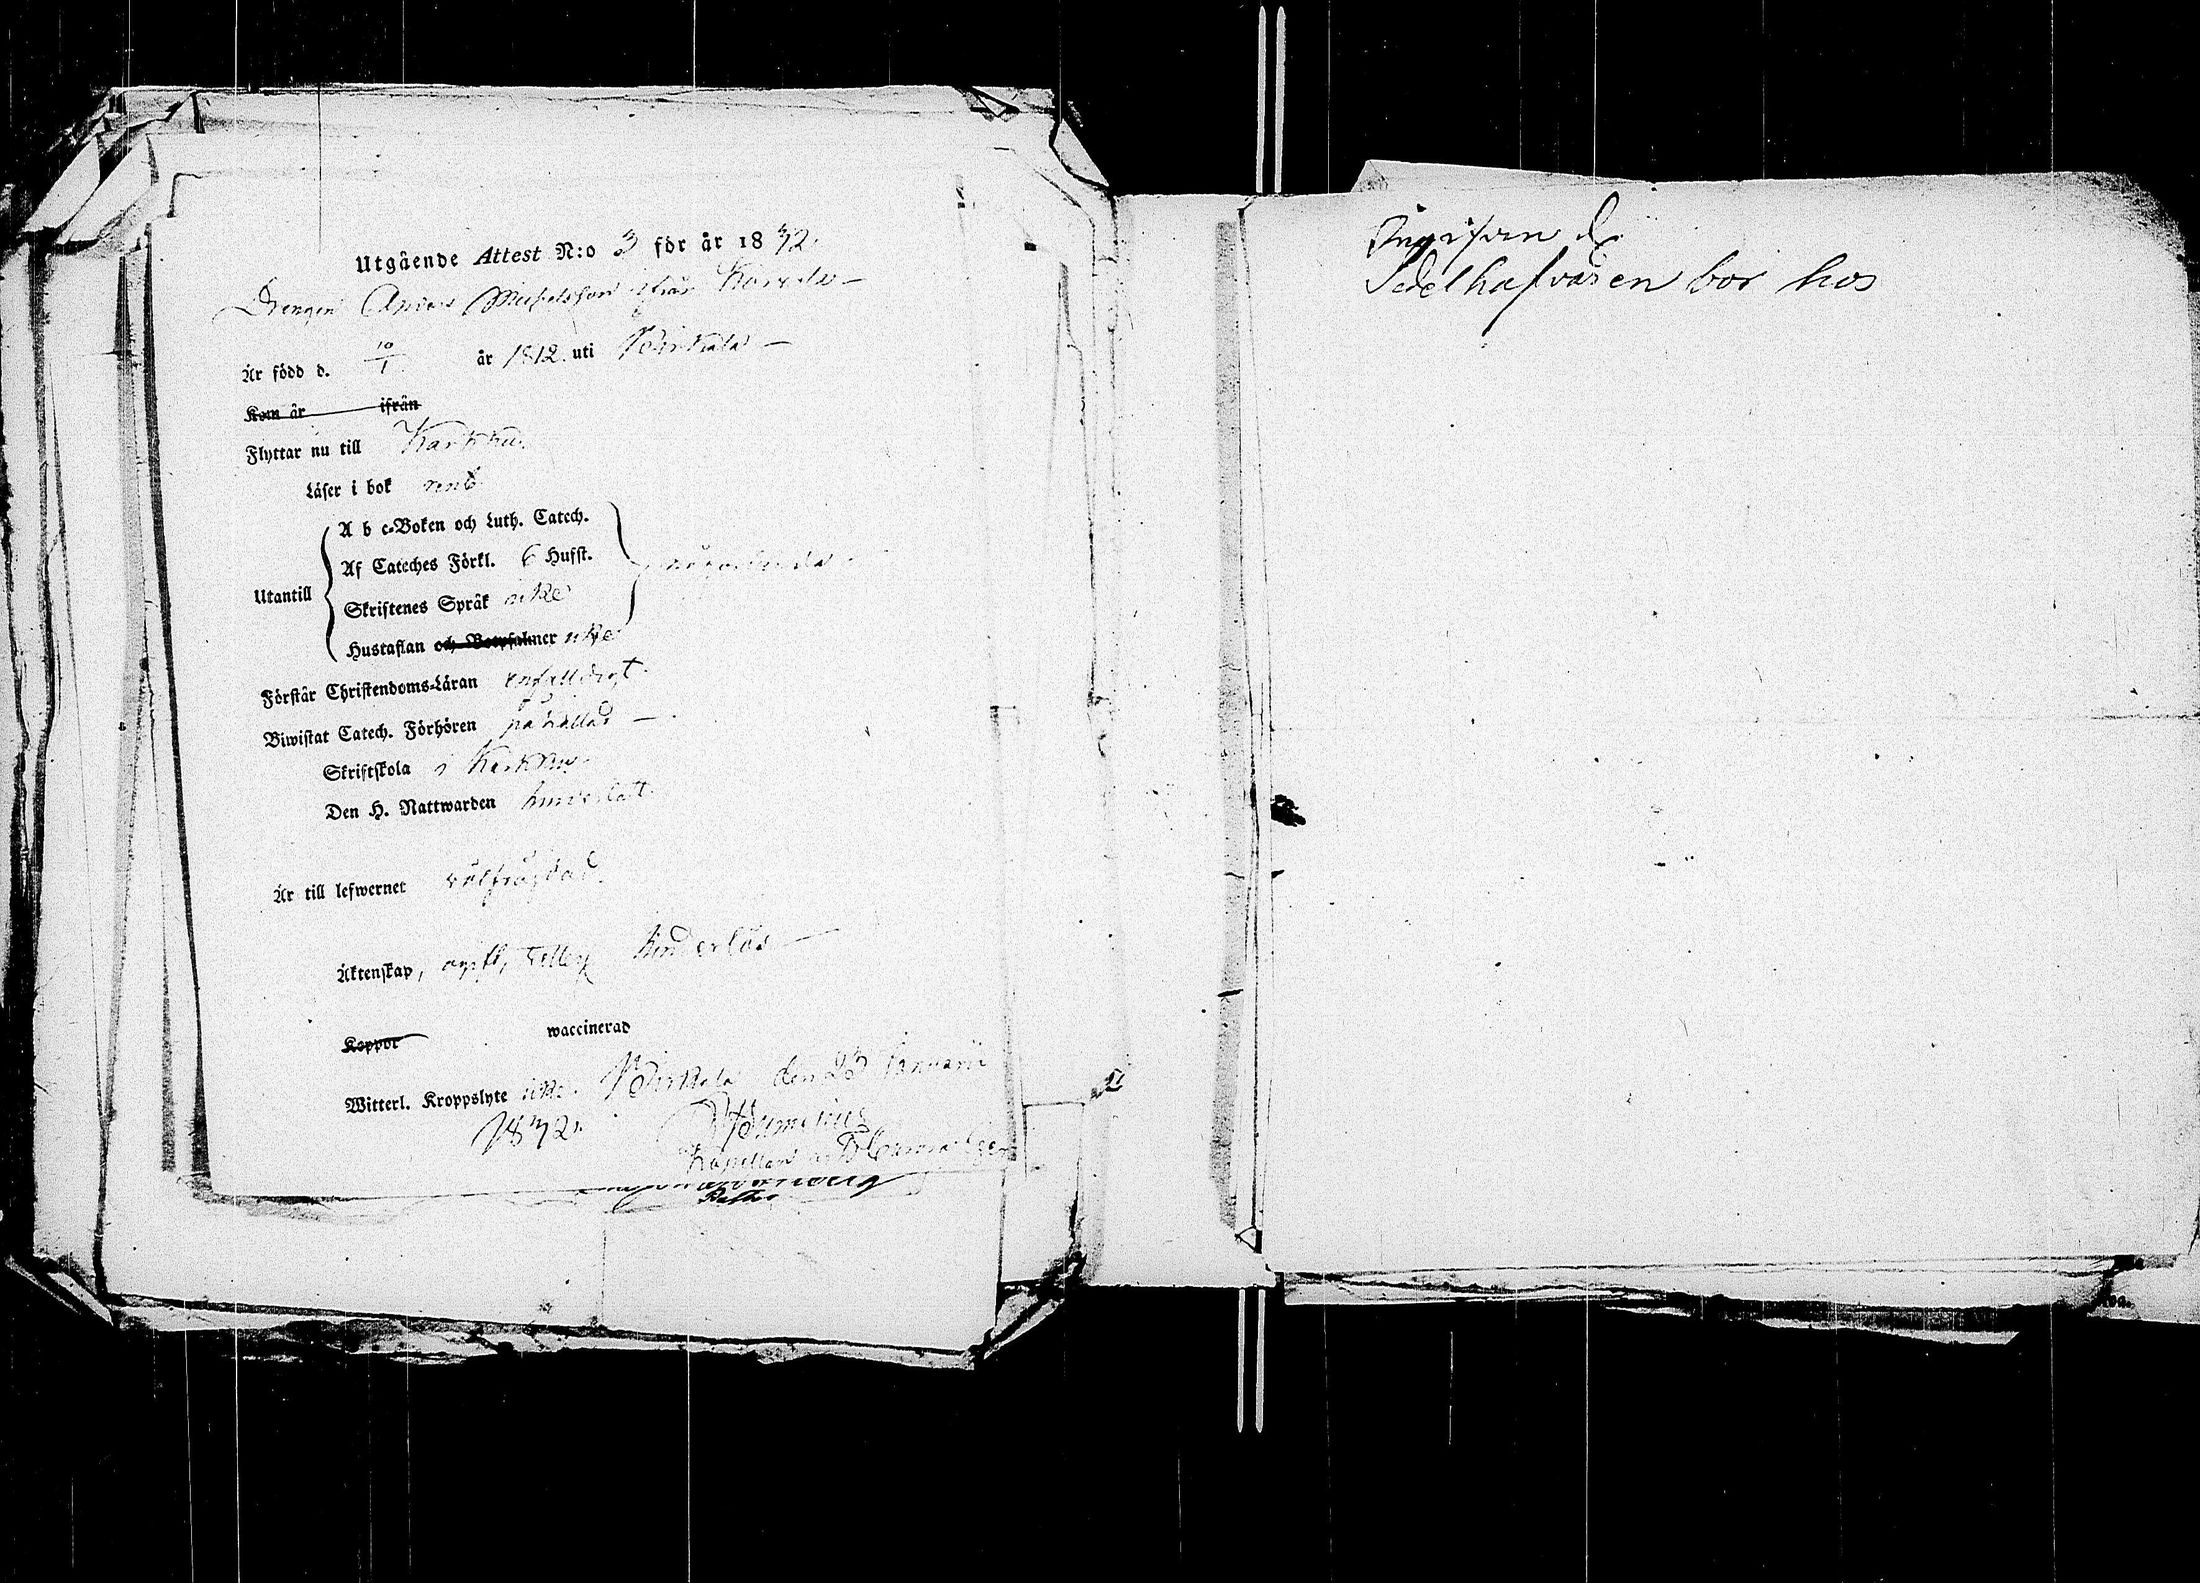 Utgående Attest N:o 3 för år 1832.
Drengen Anders Michelsson ifrån
Är född d. 10/1 år 1812 uti Birkala
Kom år ifrån
Flyttar nu till Karkku.
Läser i bok rent
A b c-Boken och Luth. Catech.
Af Cateches Förkl. 6 Hufst.
Utantill
Skriftenes Språk icke
Hustaflan och Botpsalmer icke
Förstår Christendoms-Läran enfalldigt.
Biwistat Catech. Förhören påkallad
Skriftskola i Karkku.
Den H. Nattwarden
Är till lefwernet välfrägdad.
Äktenskap, hinderlös
Koppor waccinerad
Witterl. Kroppslyte icke. Birkala den 23 Januarii
1832.
Kapellan
Sedelhafvaren bor hos